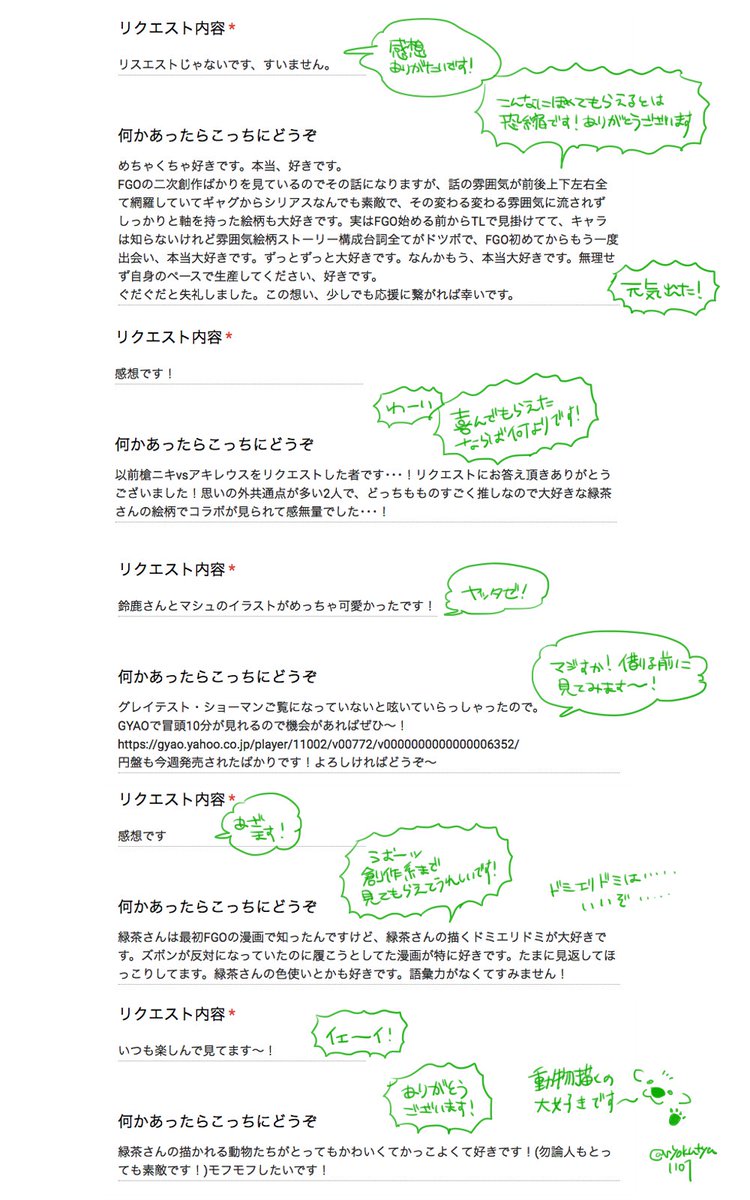 リクエスト内容*
感想
ありがたいです!
リスエストじゃないです、すいません。
こんなにほめてもらえるとは
恐縮です!ありがとうございます
何かあったらこっちにどうぞ
めちゃくちゃ好きです。本当、好きです。
FGOの二次創作ばかりを見ているのでその話になりますが、話の雰囲気が前後上下左右全
て網羅していてギャグからシリアスなんでも素敵で、その変わる変わる雰囲気に流されず
しっかりと軸を持った絵柄も大好きです。実はFGO始める前からTLで見掛けてて、キャラ
は知らないけれど雰囲気絵柄ストーリー構成台詞全てがドツボで、FGO初めてからもう一度
出会い、本当大好きです。ずっとずっと大好きです。なんかもう、本当大好きです。無理せ
ず自身のペースで生産してください、好きです。
ぐだぐだと失礼しました。この想い、少しでも応援に繋がれば幸いです。
元気出た!
リクエスト内容*
感想です!
わーい
喜んでもらえた
ならば何よりです!
何かあったらこっちにどうぞ
以前槍ニキvsアキレウスをリクエストした者です･･･!リクエストにお答え頂きありがとう
ございました!思いの外共通点が多い2人で、どっちもものすごく推しなので大好きな緑茶
さんの絵柄でコラボが見られて感無量でした･･･!
リクエスト内容*
ヤッタゼ!
鈴鹿さんとマシュのイラストがめっちゃ可愛かったです!
マジすか!借りる前に
見てみます〜!
何かあったらこっちにどうぞ
グレイテスト・ショーマンご覧になっていないと呟いていらっしゃったので。
GYAOで冒頭10分が見れるので機会があればぜひ〜!
https://gyao.yahoo.co.jp/player/11002/v00772/v0000000000000006352/
円盤も今週発売されたばかりです!よろしければどうぞ〜
リクエスト内容*
あざ
ます!
感想です
うおーッ
創作系まで
見てもらえてうれしいです!
ドミエリドミは……
いいぞ……
何かあったらこっちにどうぞ
緑茶さんは最初FGOの漫画で知ったんですけど、緑茶さんの描くドミエリドミが大好きで
す。ズボンが反対になっていたのに履こうとしてた漫画が特に好きです。たまに見返してほ
っこりしてます。緑茶さんの色使いとかも好きです。語彙力がなくてすみません!
リクエスト内容*
イェーイ!
いつも楽しんで見てます〜!
ありがとう
ございます!
動物描くの
大好きです〜
何かあったらこっちにどうぞ
緑茶さんの描かれる動物たちがとってもかわいくてかっこよくて好きです!(勿論人もとっ
ても素敵です!)モフモフしたいです!
@ryokutya
1107